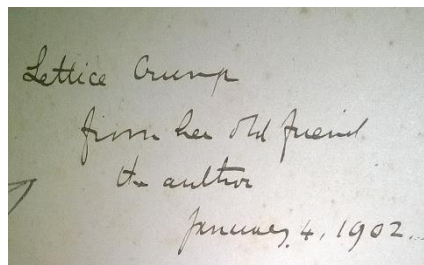 Lettice Crump
from her old friend
the author
January 4, 1902.